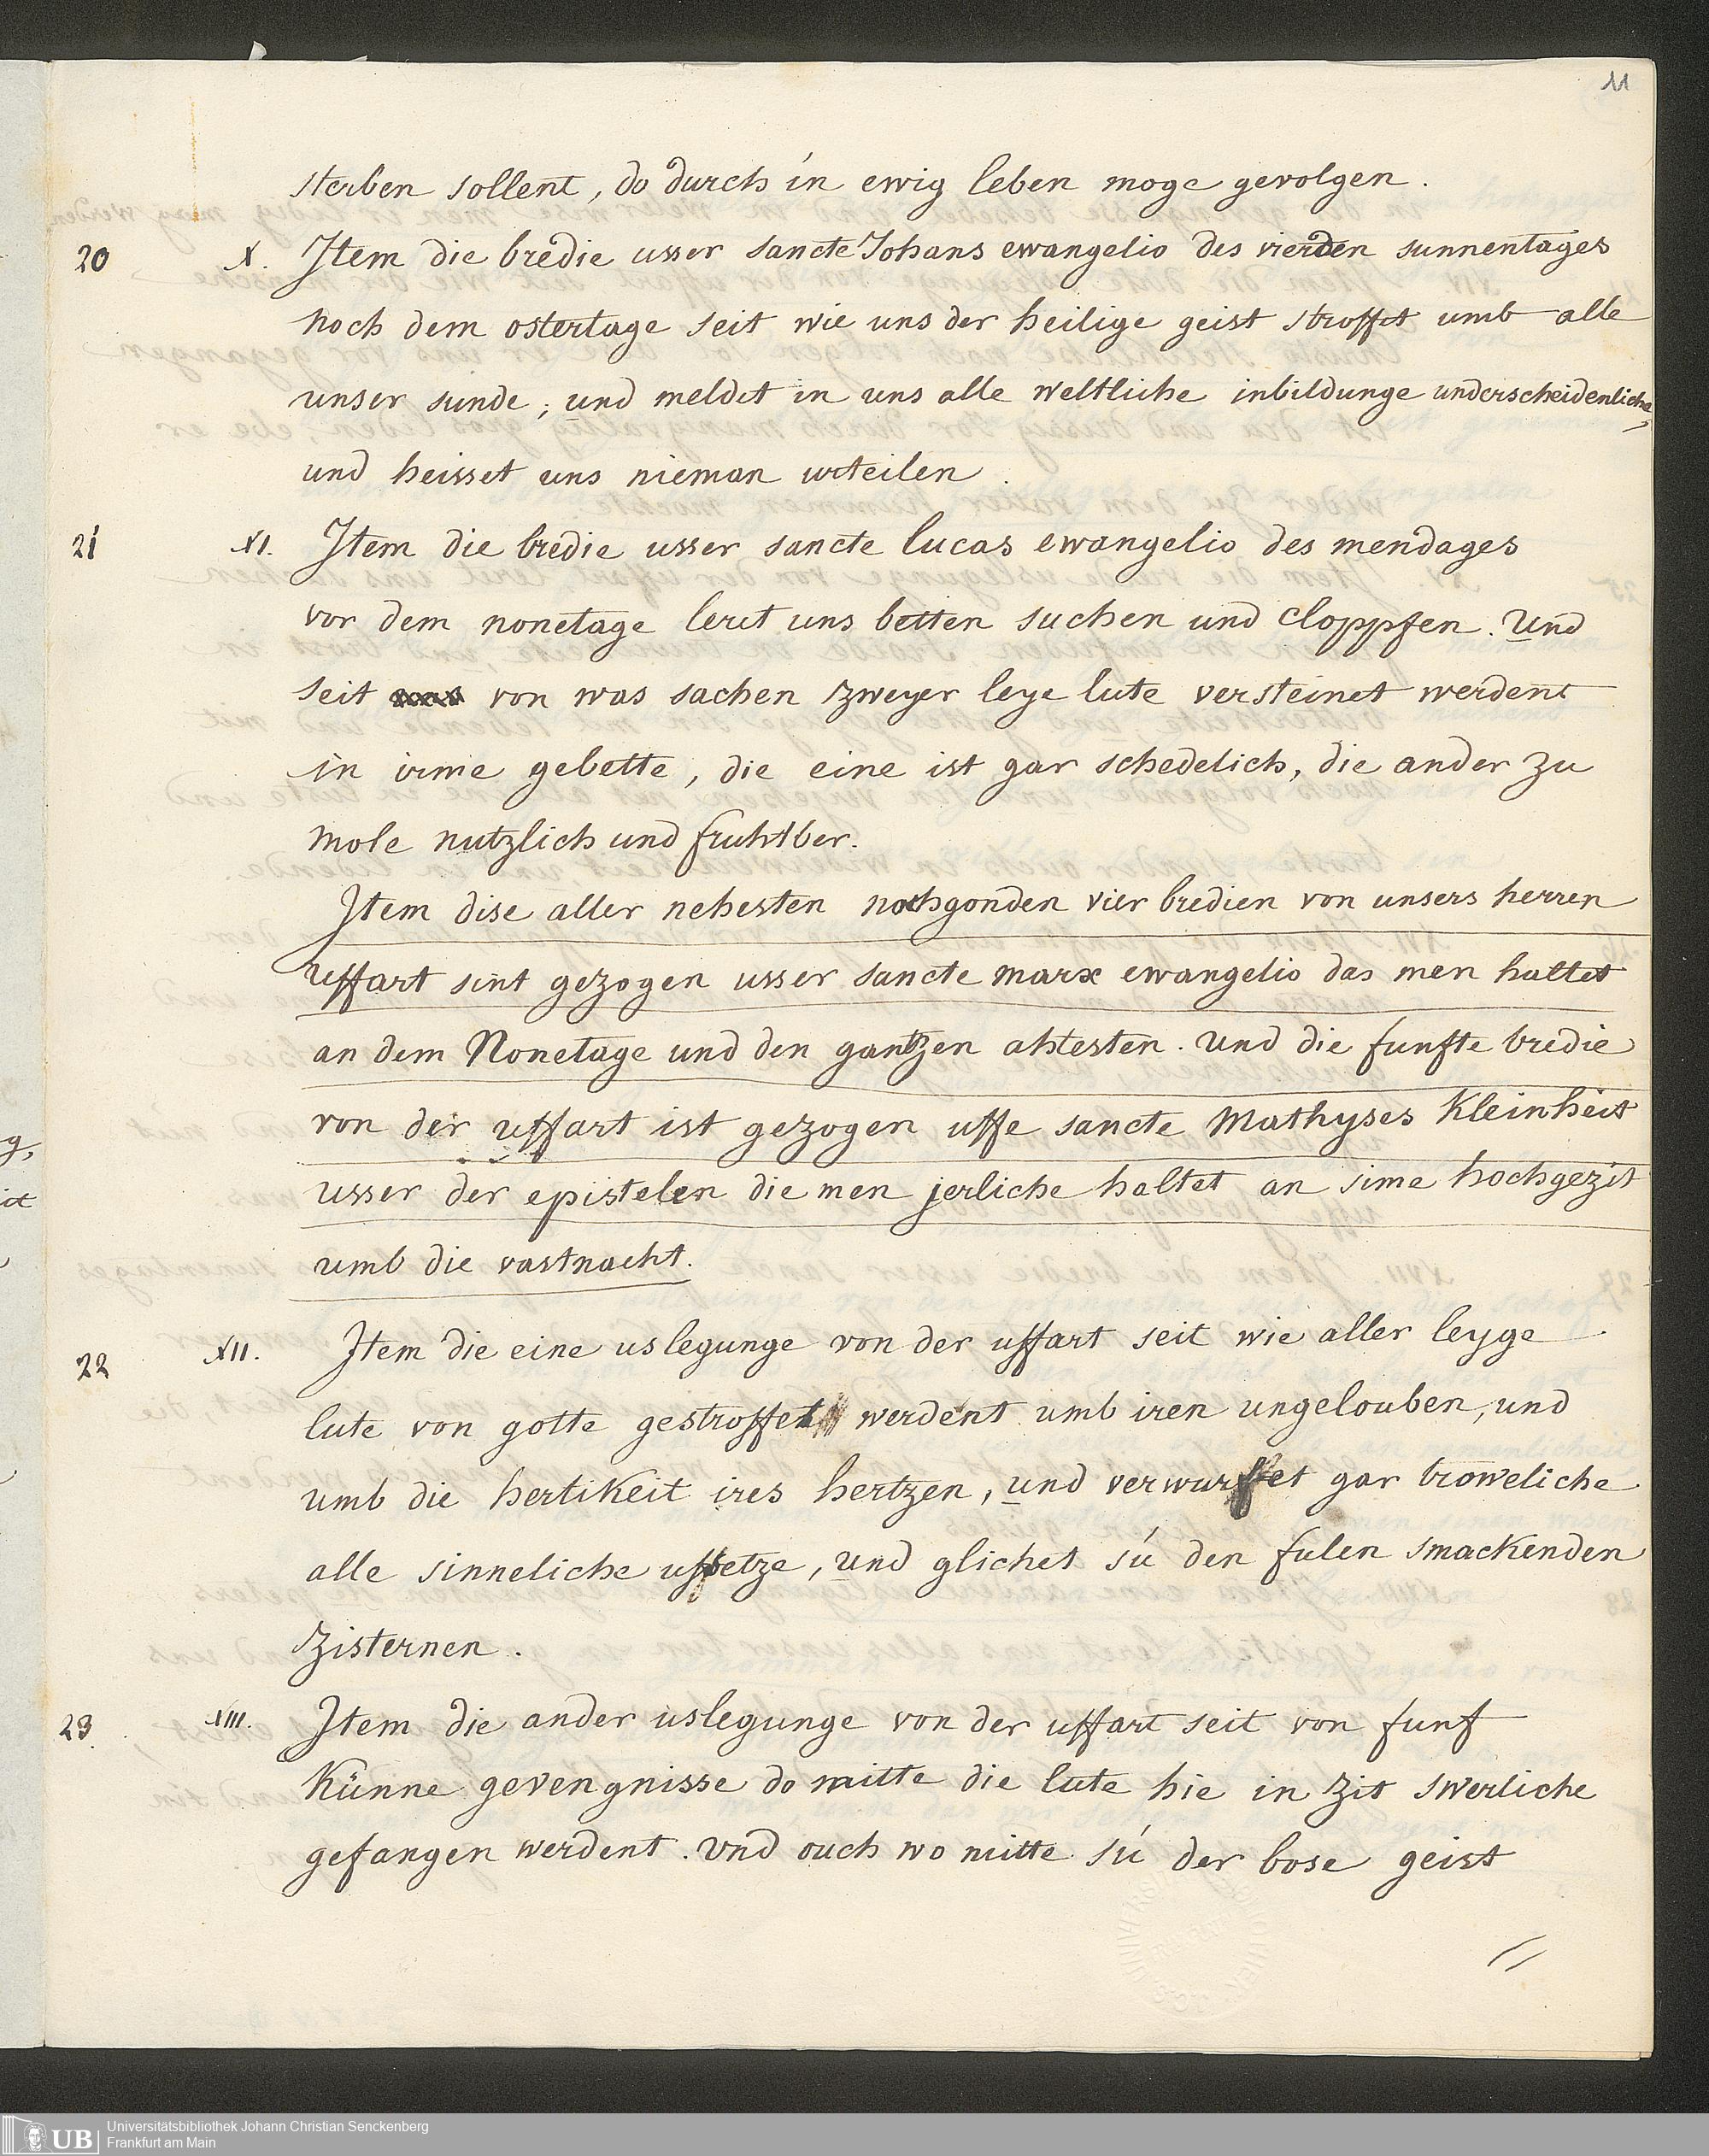 11
sterben sollent, do durch in ewig leben moge gevolgen.
20 X. Item die bredie usser sancte Johans ewangelio des vierden sunnentages
noch dem ostertage seit wie uns der heilige geist stroffet umb alle
unser sunde; und meldet in uns alle weltliche inbildunge underscheidenliche,
und heisset uns nieman urteilen.
21 XI. Item die bredie usser sancte lucas ewangelio des mendages
vor dem nonetage leret uns betten suchen und cloppfen. Und
seit von was sachen zweyer leye lute versteinet werdent
in irme gebette, die eine ist gar schedelich, die ander zu
mole nutzlich und fruhtber.
Item dise aller nehesten nochgonden vier bredien von unsers herren
uffart sint gezogen usser sancte marx ewangelio das men haltet
an dem Nonetage und den gantzen ahtesten. Und die funfte bredie
von der uffart ist gezogen uffe sancte Mathyses Kleinheit
usser der epistelen die men jerliche haltet an sime hochgezit
umb die vastnacht.
22 XII. Item die eine uslegunge von der uffart seit wie aller leyge
lute von gotte gestroffet werdent umb iren ungelouben, und
umb die hertikeit ires hertzen, und verwurffet gar troweliche
alle sinneliche uffsetze, und glichet sú den fulen smackenden
zisternen.
23. XIII. Item die ander uslegunge von der uffart seit von funf
künne gevengnisse do mitte die lute hie in zit swerliche
gefangen werdent. Und ouch wo mitte sú der bose geist
UB Universitätsbibliothek Johann Christian Senckenberg
Frankfurt am Main